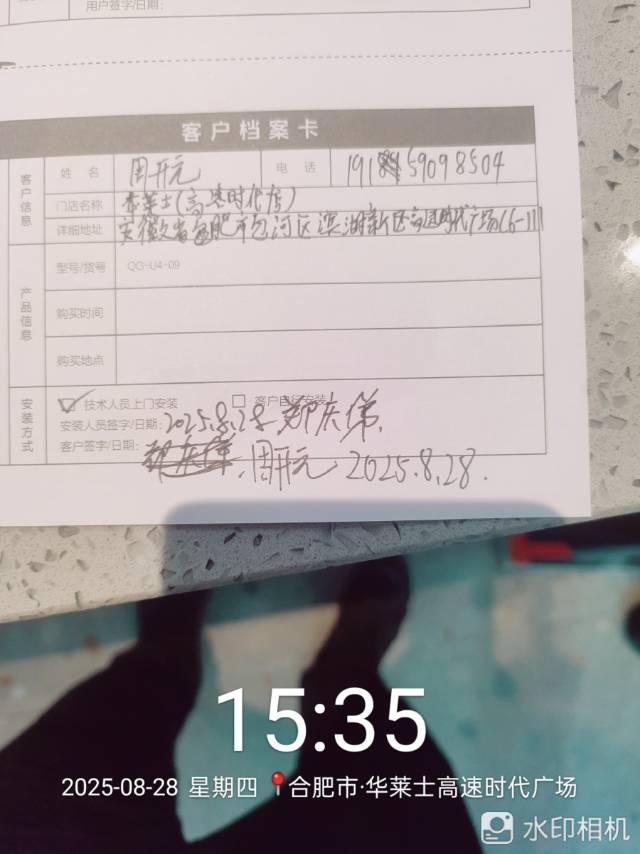 用户签字/日期：
客户档案卡
客户信息
姓 名 周开元 电 话 19159098504
门店名称 华莱士(高速时代店)
详细地址 安徽省合肥市包河区滨湖新区高速时代广场C6-111
产品信息
型号/货号 QG-U4-09
购买时间
购买地点
安装方式
技术人员上门安装 客户自行安装
安装人员签字/日期： 2025.8.28
客户签字/日期： 周开元 2025.8.28.
15:35
2025-08-28 星期四 合肥市·华莱士高速时代广场
水印相机